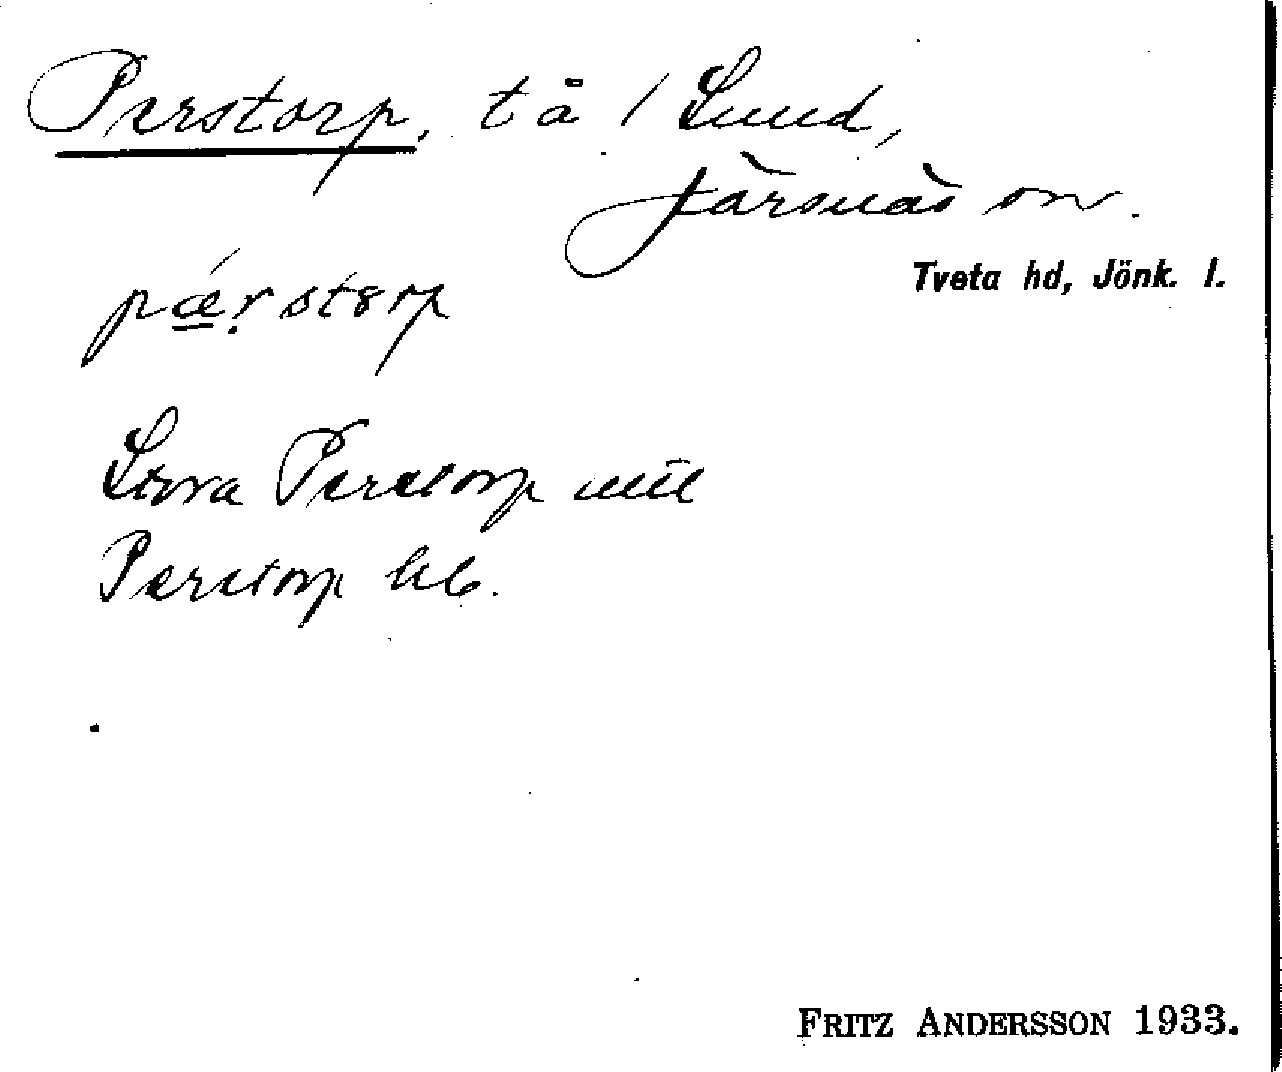 Perstorp, tå / Lund,
Järsnäs sn.
Tveta hd, Jönk. l.
pǽ̱ṛstorp
Stora Perstorp
Perstorp
FRITZ ANDERSSON 1933.